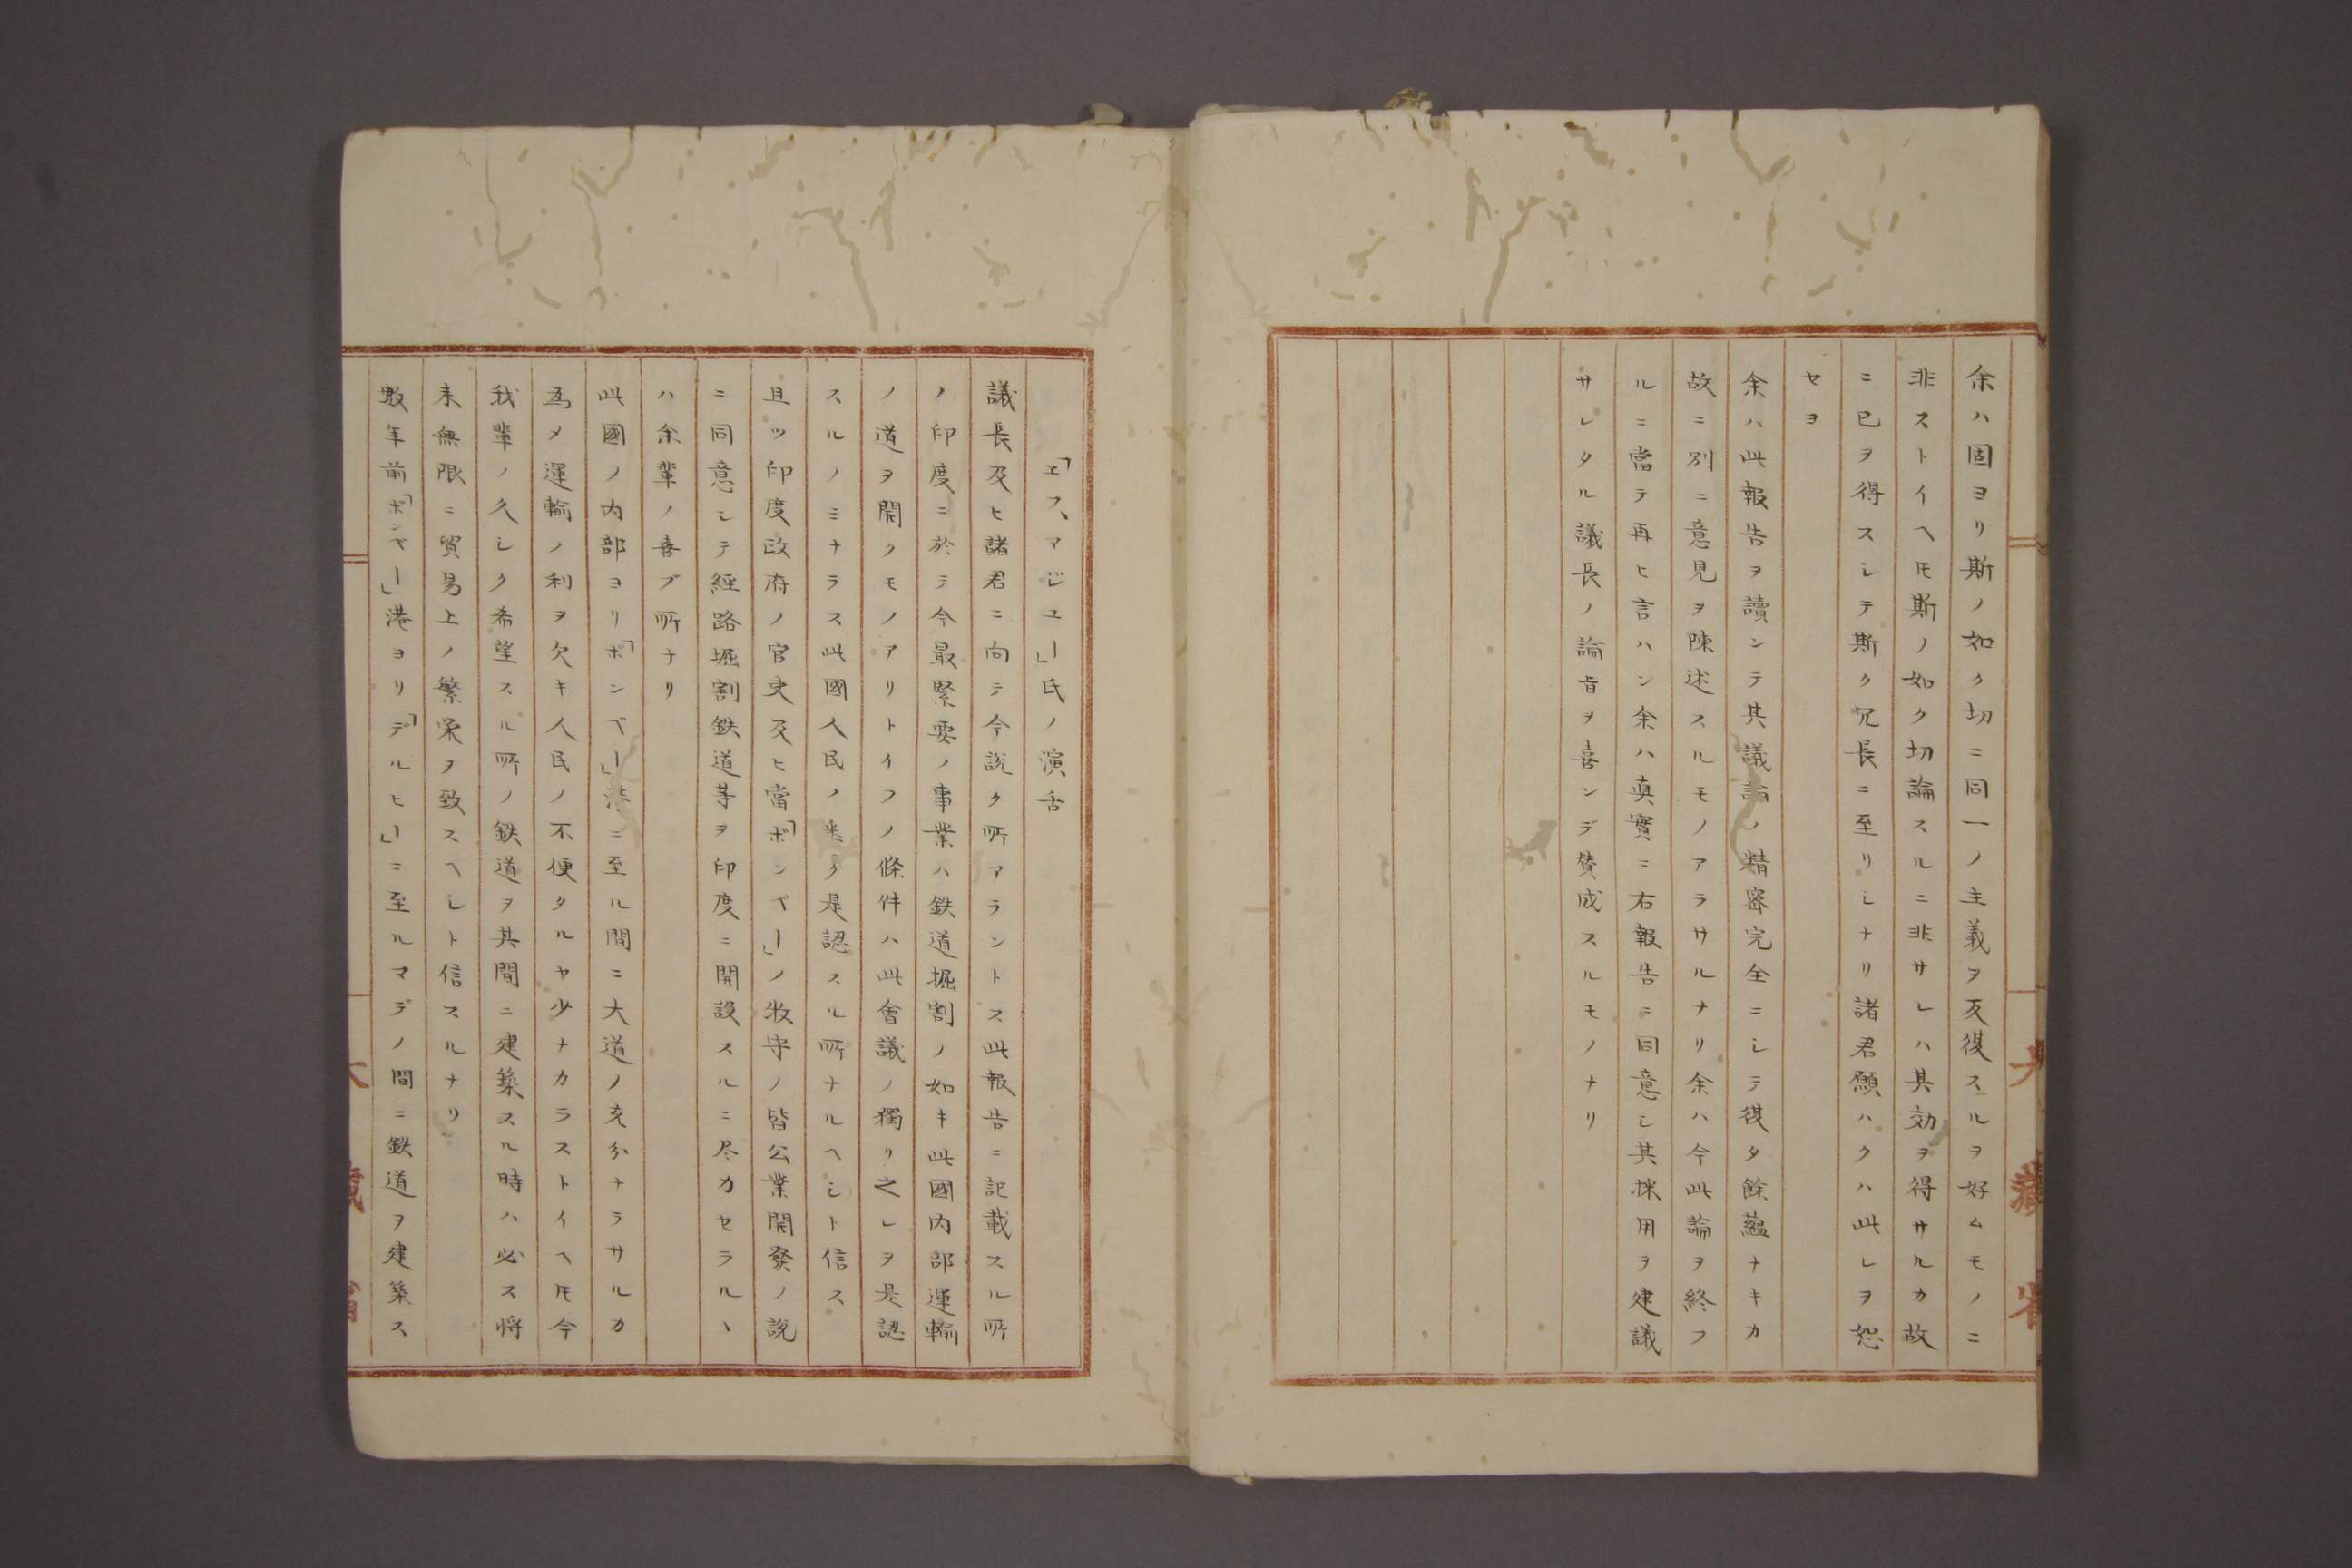 余ハ固ヨリ斯ノ如ク切ニ同一ノ主義ヲ反復スルヲ好ムモノニ
非ストイヘ𪜈斯ノ如ク切論スルニ非サレハ其効ヲ得サルカ故
ニ已ヲ得スシテ斯ク冗長ニ至リシナリ諸君願ハクハ此レヲ恕
セヨ
余ハ此報告ヲ讀ンテ其議論ノ精密完全ニシテ復タ餘蘊ナキカ
故ニ別ニ意見ヲ陳述スルモノアラサルナリ余ハ今此論ヲ終フ
ルニ當テ再ヒ言ハン余ハ真實ニ右報告ニ同意シ其採用ヲ建議
サレタル議長ノ論旨ヲ喜ンデ賛成スルモノナリ
「ヱフ、マジユー」氏ノ演舌
議長及ヒ諸君ニ向テ今説ク所アラントス此報告ニ記載スル所
ノ印度ニ於テ今最緊要ノ事業ハ鉄道堀割ノ如キ此國内部運輸
ノ道ヲ開クモノアリトイフノ條件ハ此會議ノ獨リ之レヲ是認
スルノミナラス此國人民ノ是認スル所ナルヘシト信ス
且ツ印度政府ノ官吏及ヒ當「ボンベー」ノ牧守ノ皆公業開發ノ説
ニ同意シテ経路堀割鉄道等ヲ印度ニ開設スルニ尽力セラルヽ
ハ余輩ノ喜ブ所ナリ
此國ノ内部ヨリ「ボンベー」港ニ至ル間ニ大道ノ充分ナラサルカ
為メ運輸ノ利ヲ欠キ人民ノ不便タルヤ少ナカラストイヘ𪜈今
我輩ノ久シク希望スル所ノ鉄道ヲ其間ニ建築スル時ハ必ス将
来無限ニ貿易上ノ繁栄ヲ致スヘシト信スルナリ
數年前「ボンベー」港ヨリ「デルヒー」ニ至ルマデノ間ニ鉄道ヲ建築ス
大藏省